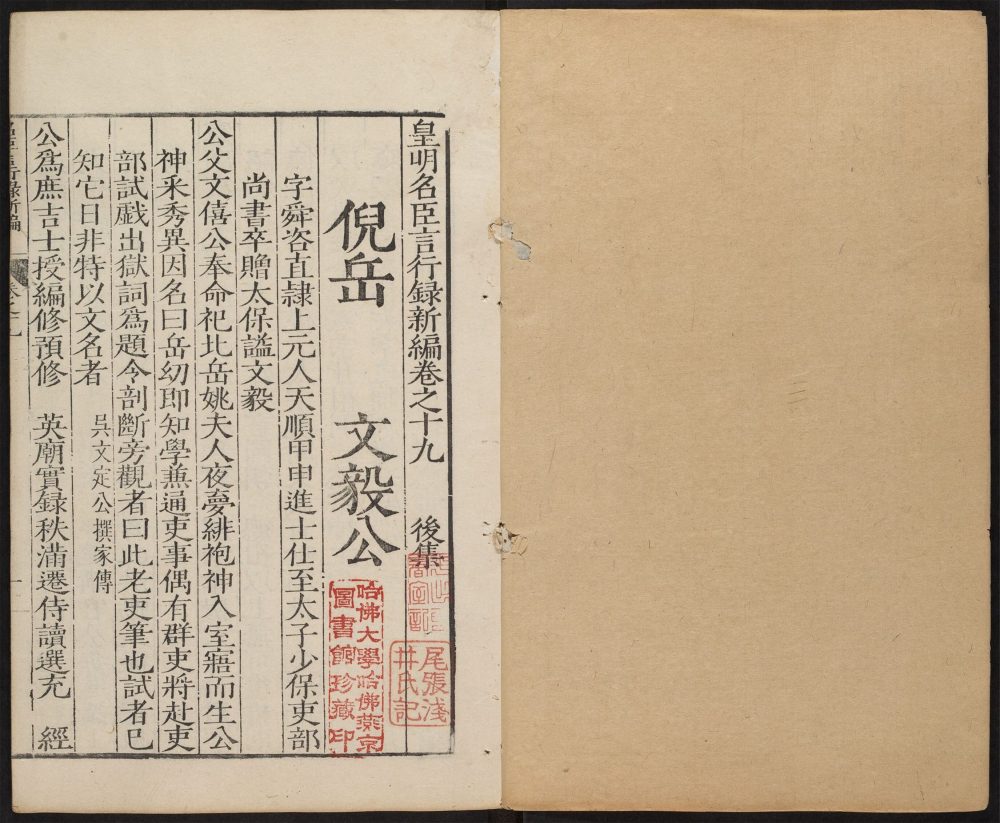 皇明名臣言行録新編卷之十九　後集
倪岳　文毅公
字舜咨直隷上元人天順甲申進士仕至太子少保吏部
尚書卒贈太保謚文毅
公父文僖公奉命祀北岳姚夫人夜夢緋袍神入室寤而生公
神采秀異因名曰岳幼即知學兼通吏事偶有群吏將赴吏
部試戱出獄詞爲題令剖斷旁觀者曰此老吏筆也試者已
知它日非特以文名者　吳文定公撰家傳
公爲庶吉士授編修預修　英廟實録秩滿遷侍讀選充　經
尾張淺
井氏記
哈佛大學哈佛燕京
圖書館珍藏印